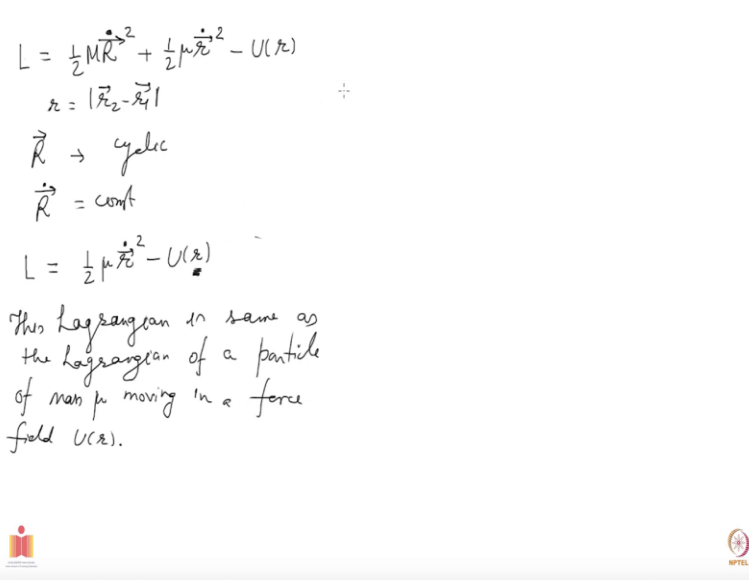 L = ½ M\dot{\vec{R}}² + ½ μ\dot{\vec{r}}² − U(r)
r = |\vec{r}₂ − \vec{r}₁|
\vec{R} → cyclic
\dot{\vec{R}} = const
L = ½ μ\dot{\vec{r}}² − U(r)
This Lagrangian is same as
the Lagrangian of a particle
of mass μ moving in a force
field U(r).
NPTEL